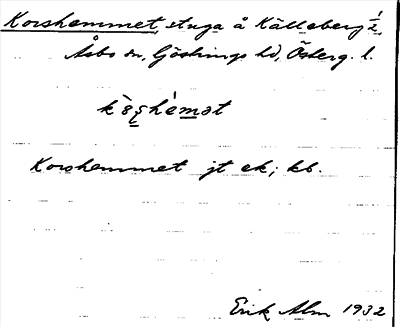 Korshemmet, stuga å Källeberg 1/2,
Åsbo sn, Göstrings hd, Österg. l.
Korshemmet jt ek; kb.
Erik Alm 1932